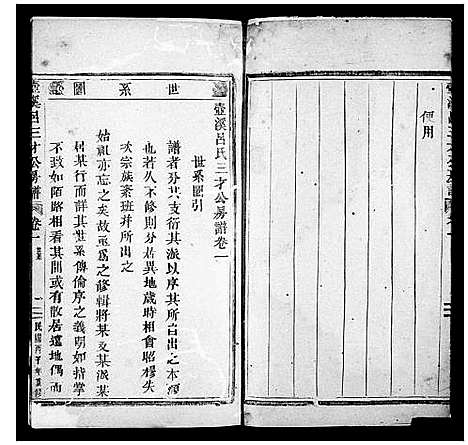 便用
世系圖
壺溪呂氏三才公房譜卷一
世系圖引
譜者分其支衍其派以序其所自出之本源
也若久不修則分居異地歲時相會昭穆失
次宗族紊班并所出之
始祖亦忘之矣故亟為之修輯將某父某淑某
居某行而詳其世系傳倫序之義明如指掌
不致如陌路相看其間或有散居遠地偶而
壺溪呂三才公房譜 卷一
民國丙子年重修